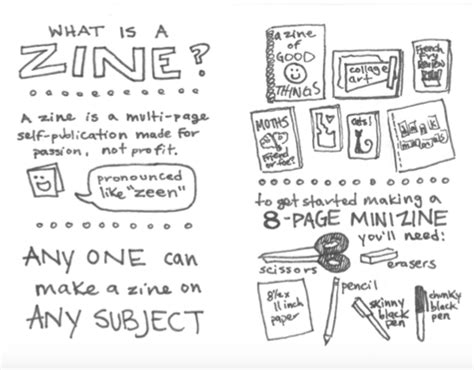 WHAT IS A
ZINE?
A zine is a multi-page
self-publication made for
passion, not profit.
pronounced
like "zeen"
ANY ONE can
make a zine on
ANY SUBJECT
a zine
of
GOOD
THINGS
collage
art
French
Fry
Review
MOTHS
Friend
or foe?
cats!
to get started making a
8-PAGE MINIZINE
you'll need:
scissors
erasers
8½x
11 inch
paper
pencil
skinny
black
pen
chunky
black
pen